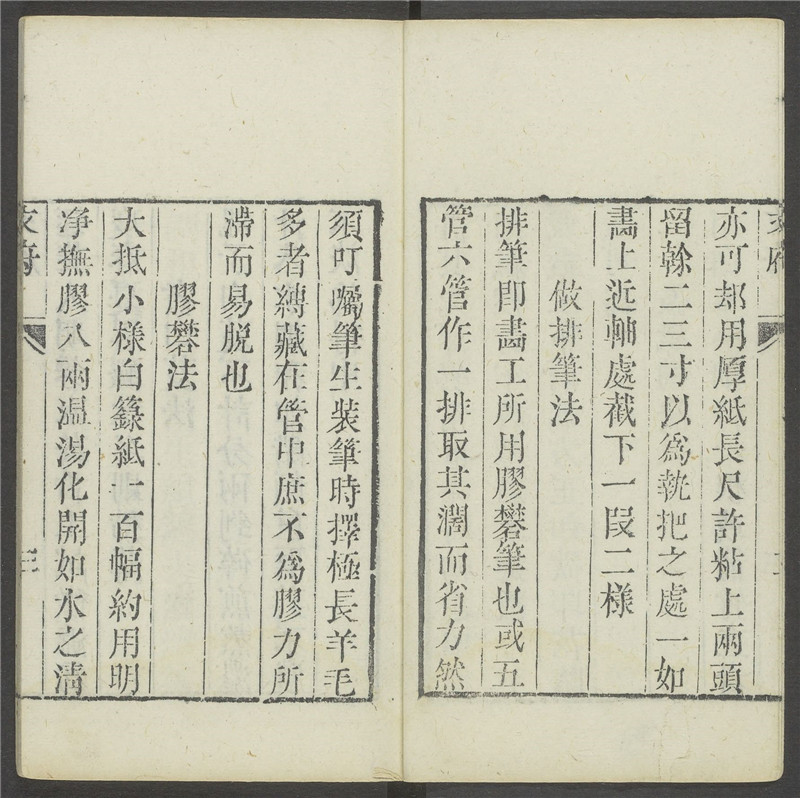 亦可却用厚紙長尺許粘上兩頭
留餘二三寸以爲執把之處一如
畵上近軸處截下一叚二樣
做排筆法
排筆即畵工所用膠礬筆也或五
管六管作一排取其濶而省力然
須叮囑筆生裝筆時擇極長羊毛
多者縛藏在管中庶不爲膠力所
滯而易脫也
膠礬法
大抵小樣白籙紙一百幅約用明
净撫膠八兩温湯化開如水之清